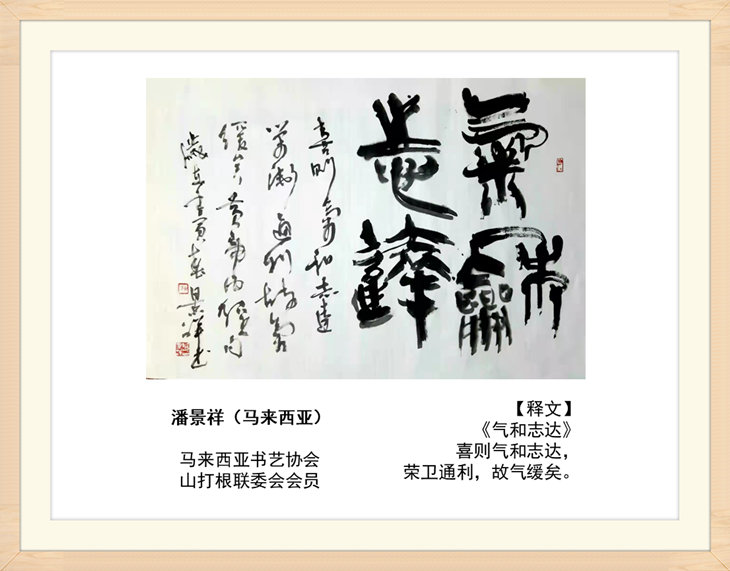 氣龢
志達
喜則氣和志達
榮衛通利故氣
緩矣黃帝內經句
歲在壬寅 景祥书
潘景祥（马来西亚）
马来西亚书艺协会
山打根联委会会员
【释文】
《气和志达》
喜则气和志达，
荣卫通利，故气缓矣。